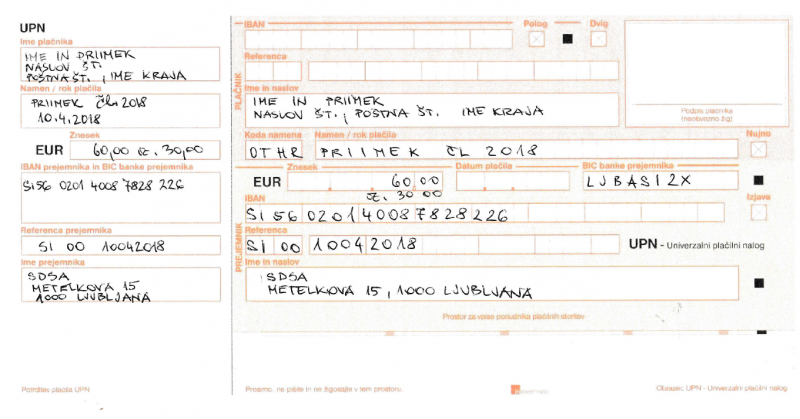 UPN
Ime plačnika
IME IN PRIIMEK
NASLOV ŠT.
POŠTNA ŠT., IME KRAJA
Namen / rok plačila
PRIIMEK ČL. 2018
10.4.2018
Znesek
EUR 60,00 oz. 30,00
IBAN prejemnika in BIC banke prejemnika
SI56 0201 4008 7828 226
Referenca prejemnika
SI 00 10042018
Ime prejemnika
SDSA
METELKOVA 15
1000 LJUBLJANA
Potrditev plačila UPN
PLAČNIK
IBAN
Polog
Dvig
Referenca
Ime in naslov
IME IN PRIIMEK
NASLOV ŠT., POŠTNA ŠT. IME KRAJA
Podpis plačnika
(neobvezno žig)
Koda namena Namen / rok plačila Nujno
OTHR PRIIMEK ČL 2018
Znesek Datum plačila BIC banke prejemnika
EUR 60,00 LJBASI2X
oz. 30 00
PREJEMNIK
IBAN Izjava
SI56 0201 4008 7828 226
Referenca
SI 00 10042018
UPN - Univerzalni plačilni nalog
Ime in naslov
SDSA
METELKOVA 15, 1000 LJUBLJANA
Prostor za vpise ponudnika plačilnih storitev
Prosimo, ne pišite in ne žigosajte v tem prostoru.
Obrazec UPN - Univerzalni plačilni nalog